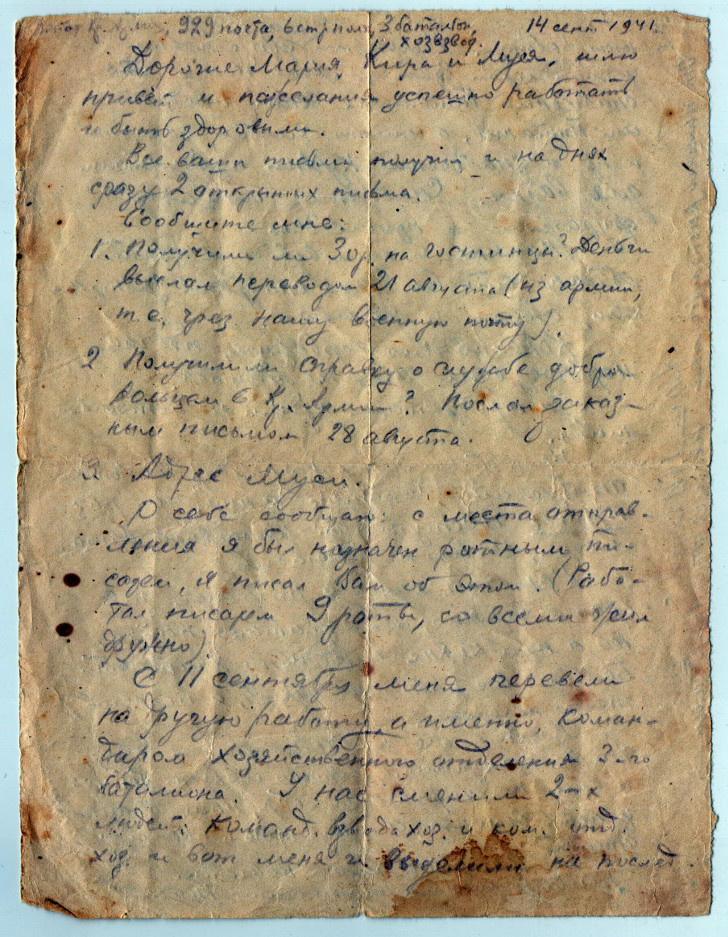 929 почта, 6 стр полк, 3 батальон, 14 сент 1941.
хозвзвод
Дорогие Мария, Кира и Муся, шлю
привет и пожелания успешно работать
и быть здоровыми.
Все ваши письма получил и на днях
сразу 2 открытых письма.
Сообщите мне:
1. Получили ли 30 р. на гостинцы? Деньги
выслал переводом 21 августа (из армии,
т.е. чрез нашу военную почту).
2 Получили ли справку о службе добро-
вольцем в Кр. Армии? Послал заказ-
ным письмом 28 августа.
3 Адрес Муси.
О себе сообщаю: с места отправ-
ления я был назначен ротным пи-
сарем, я писал Вам об этом. (Рабо-
тал писарем 9 роты, со всеми жил
дружно).
С 11 сентября меня перевели
на другую работу, а именно, коман-
диром хозяйственного отделения 3-го
батальона. У нас сменили 2-их
людей: команд. взвода хоз. и ком. отд.
хоз. и вот меня и выделили на послед.